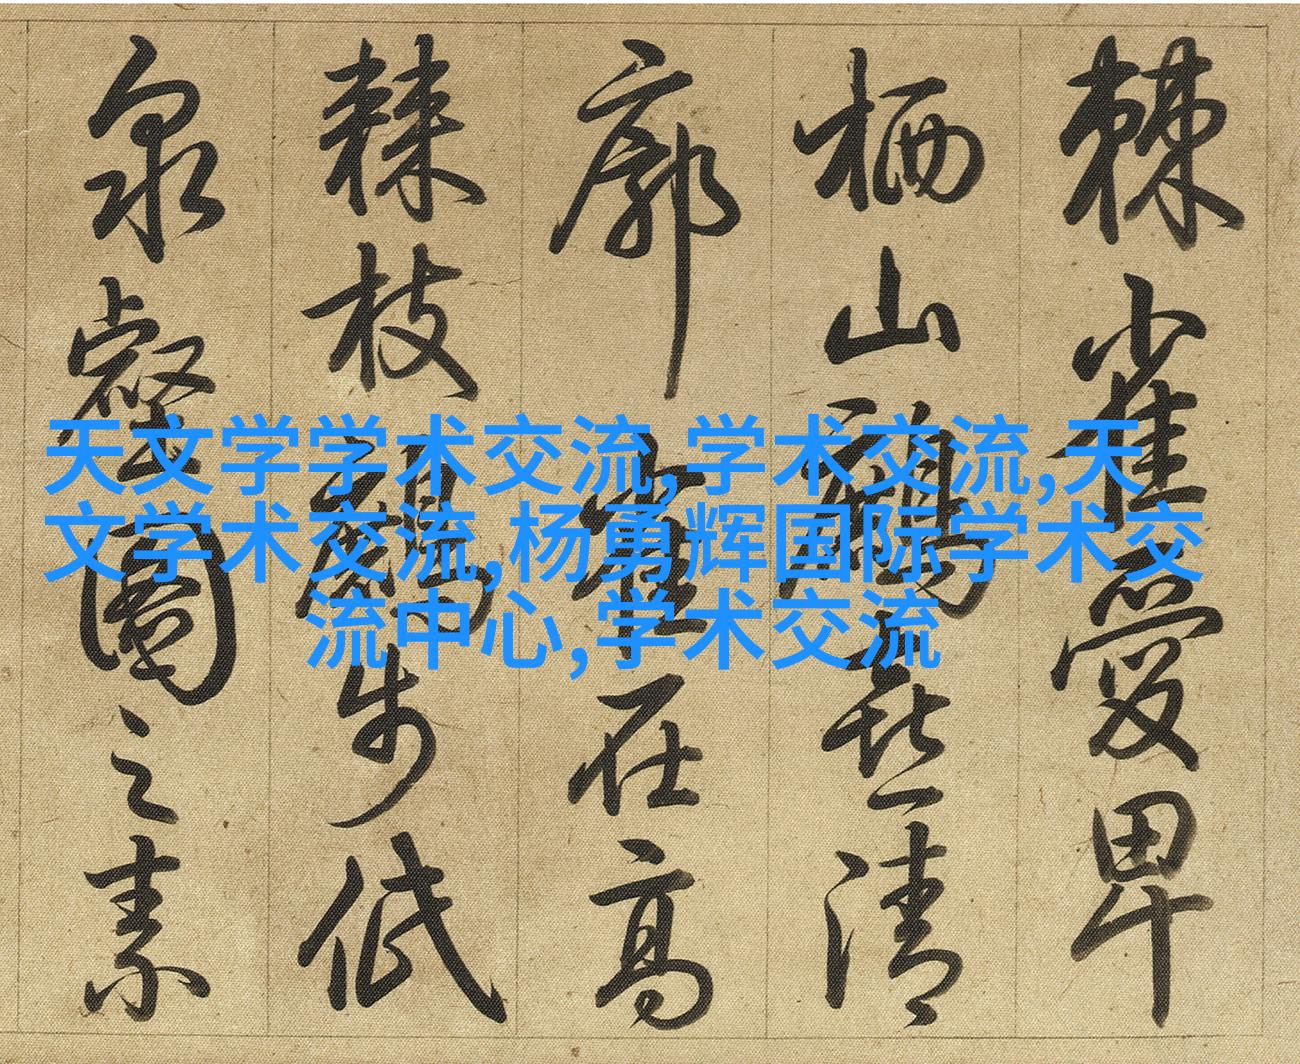 天文学学术交流,学术交流,天
文学术交流,杨勇辉国际学术交
流中心,学术交流
棘雀愛卑
栖山喜清
廓雀在高
棘枝步低
泉壑圖之素